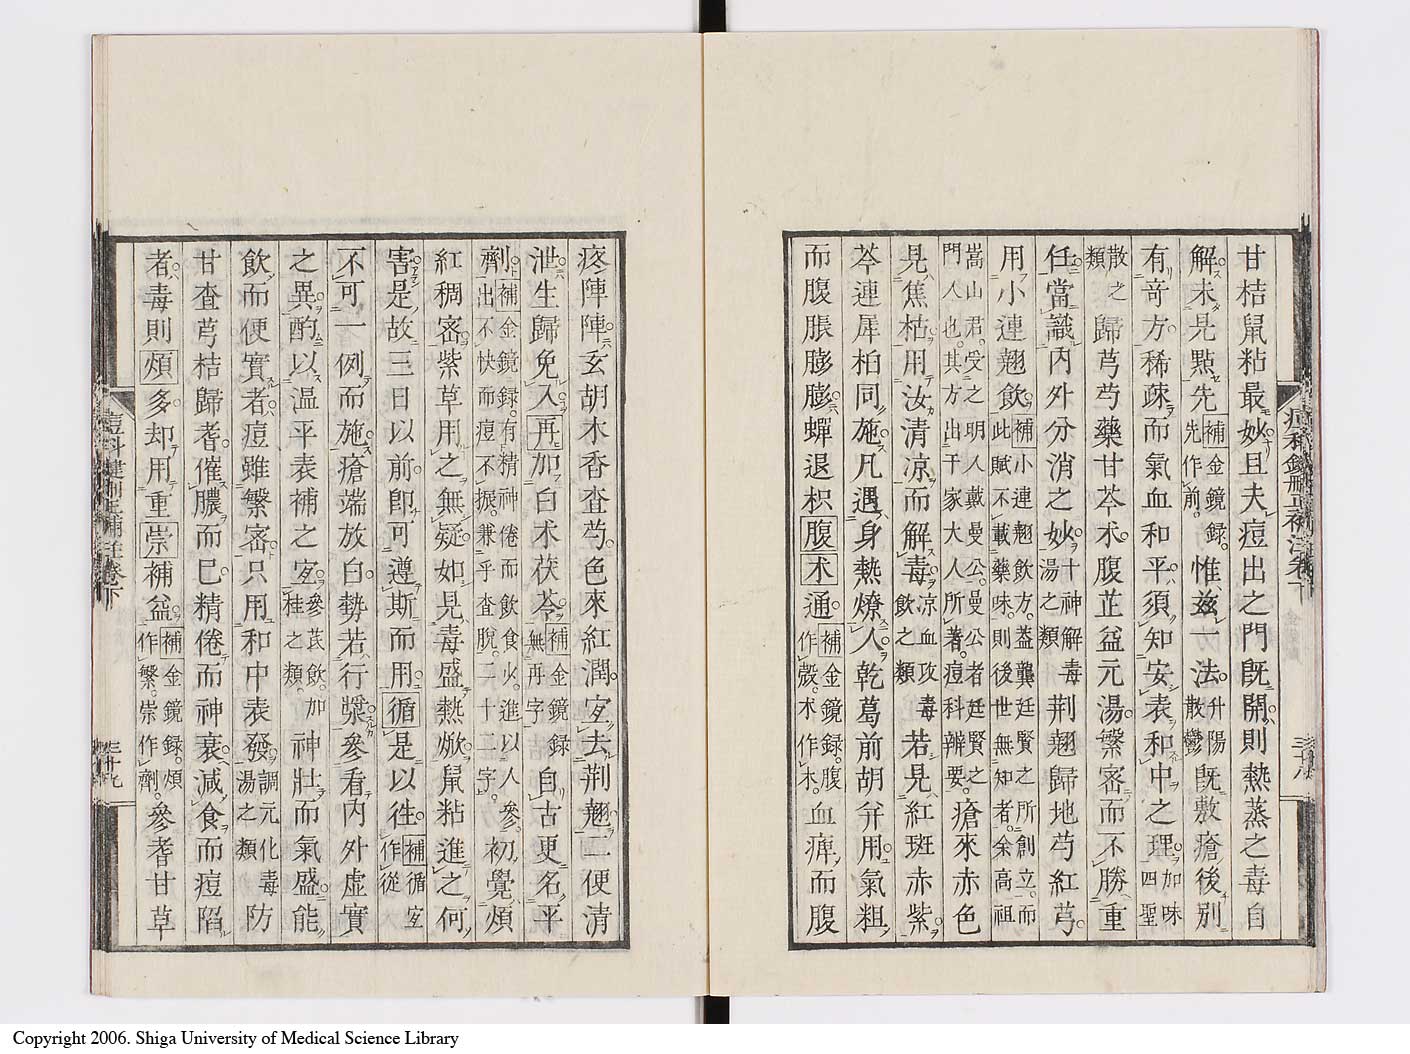 甘桔鼠粘最妙且夫痘出之門既開則熱蒸之毒自
解未見點先補金鏡録先作前惟茲一法升陽散鬱既敷瘡後別
有奇方稀疎而氣血和平須知安表和中之理加味四聖
散之類歸芎芍藥甘芩朮腹芷益元湯繁密而不勝重
任當識内外分消之妙十神解毒湯之類荆翹歸地芍紅芎
用小連翹飲補小連翹飲方蓋龔廷賢之所創立而此賦不載藥味則後世無知者余高祖
嵩山君受之明人戴曼公曼公者廷賢門人也其方出于家大人所著痘科辨要瘡來赤色
見焦枯用汝清凉而解毒凉血攻毒飲之類若見紅斑赤紫
芩連犀柏同施凡遇身熱燎人乾葛前胡并用氣粗
而腹脹膨膨蟬退枳腹朮通補金鏡録腹作殼朮作木血痺而腹
疼陣陣玄胡木香査芍色來紅潤宜去荆翹二便清
泄生歸免入再加白朮茯苓補金鏡録無再字自古更名平
劑補金鏡録有精神倦而飲食火進以人參初覺煩出不快而痘不振兼乎査脱二十二字
紅稠密紫草用之無疑如見毒盛熱焮鼠粘進之何
害是故三日以前卽可遵斯而用循是以徃補循宜作從
不可一例而施瘡端放白勢若行漿參看内外虚實
之異酌以温平表補之宜參芪飲加桂之類神壯而氣盛能
飲而便實者痘雖繁密只用和中表發調元化毒湯之類防
甘査芎桔歸耆催膿而已精倦而神衰減食而痘陷
者毒則煩多却用重崇補益補金鏡録煩作繁崇作劑參耆甘草
痘科鍵刪正補註卷下
三十八
痘科鍵刪正補註卷下
三十九
Copyright 2006. Shiga University of Medical Science Library